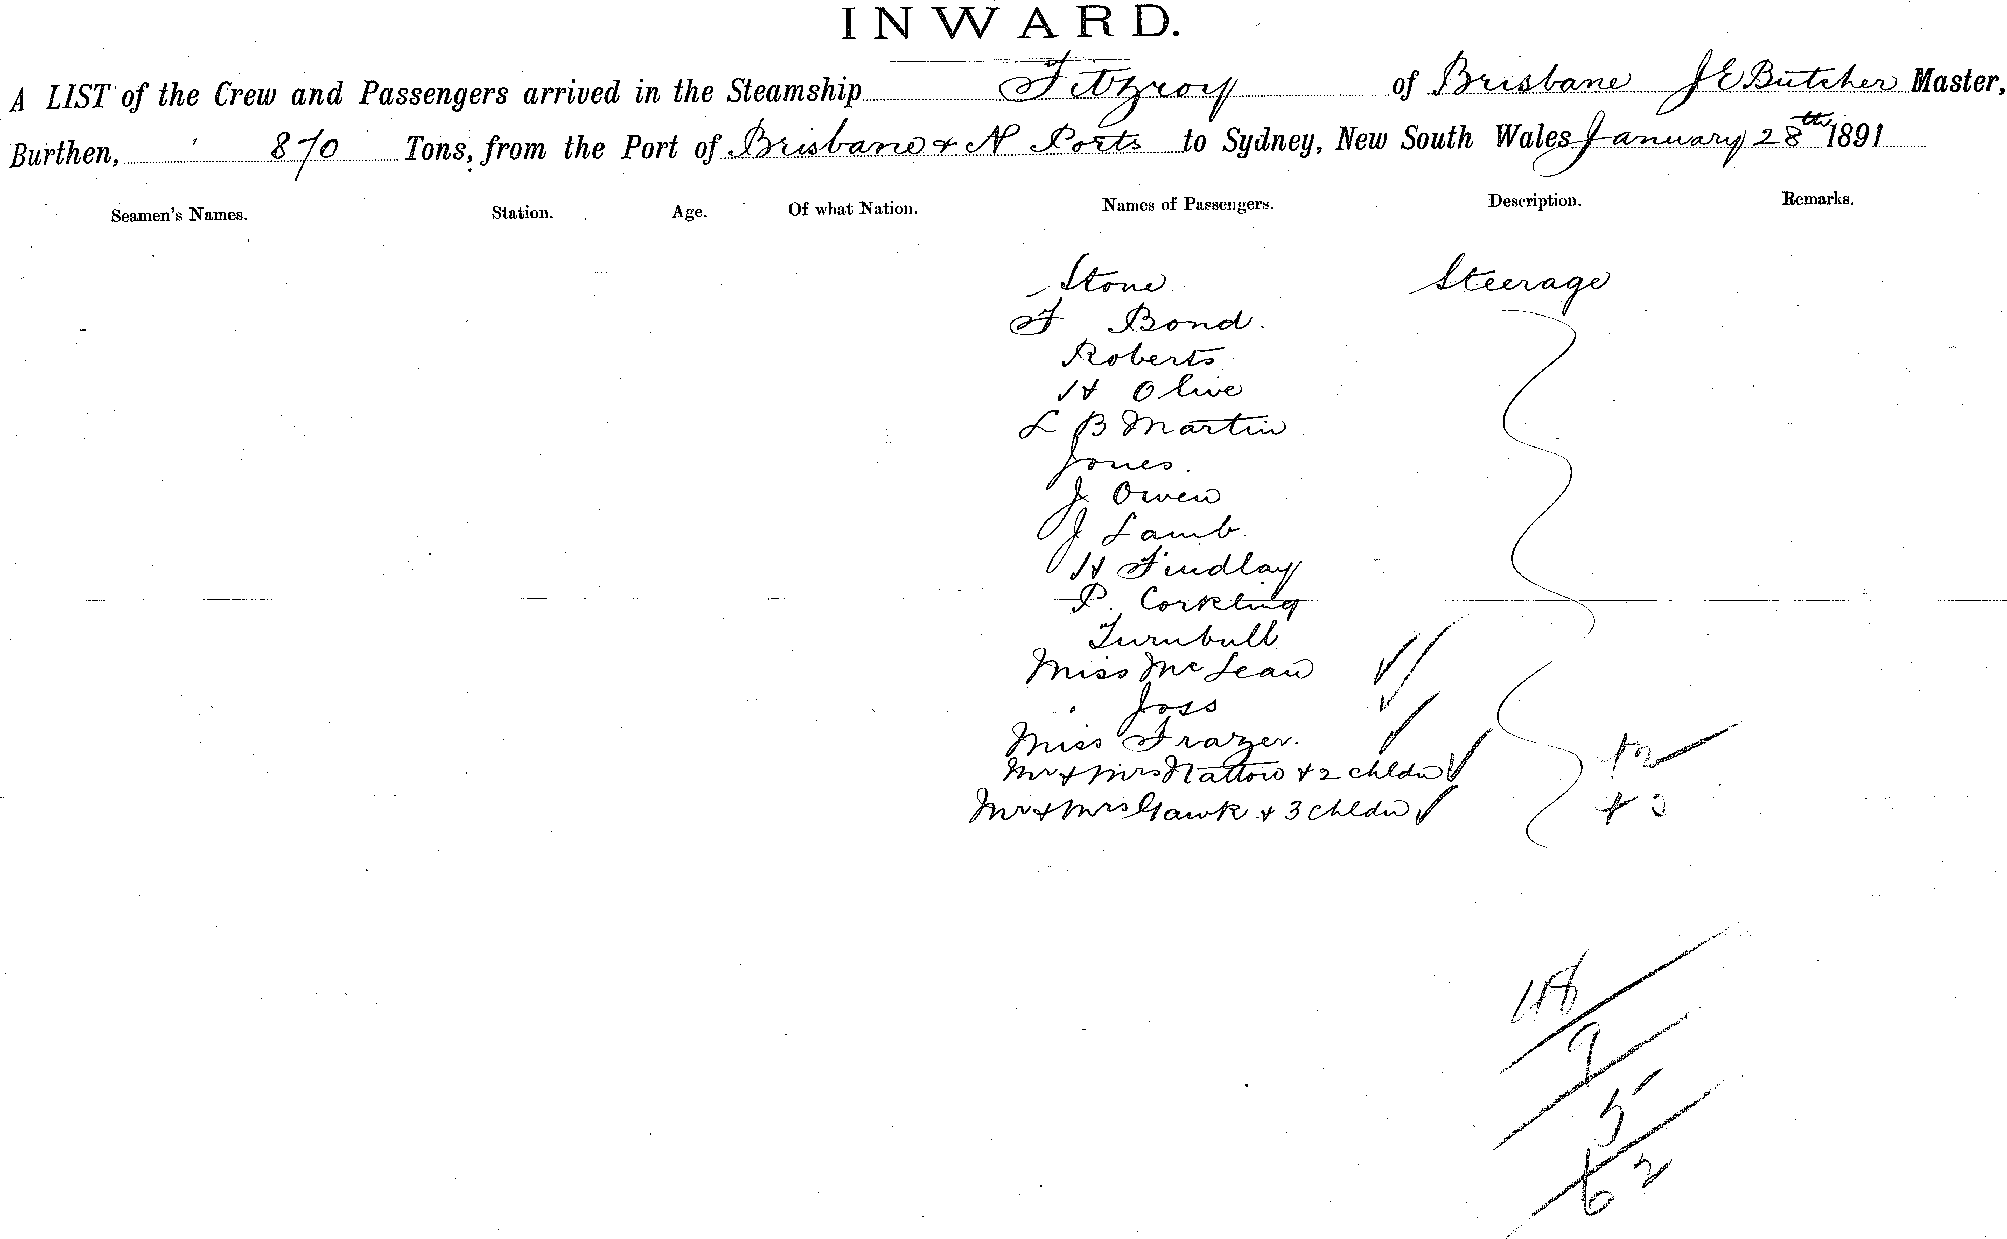 INWARD.
A LIST of the Crew and Passengers arrived in the Steamship Fitzroy of Brisbane J E Butcher Master,
Burthen, 870 Tons, from the Port of Brisbane & N Ports to Sydney, New South Wales January 28th 1891
Seamen's Names. Station. Age. Of what Nation. Names of Passengers. Description. Remarks.
Stone Steerage
F Bond.
Roberts
H Olive
L B Martin
Jones.
J Owen
J Lamb
H Findlay
P. Corkling
Turnbull
Miss McLean
" Joss
Miss Frazer.
Mr & Mrs & 2 chldn +2
Mr & Mrs Hawk & 3 chldn + 3
48
9
5
62